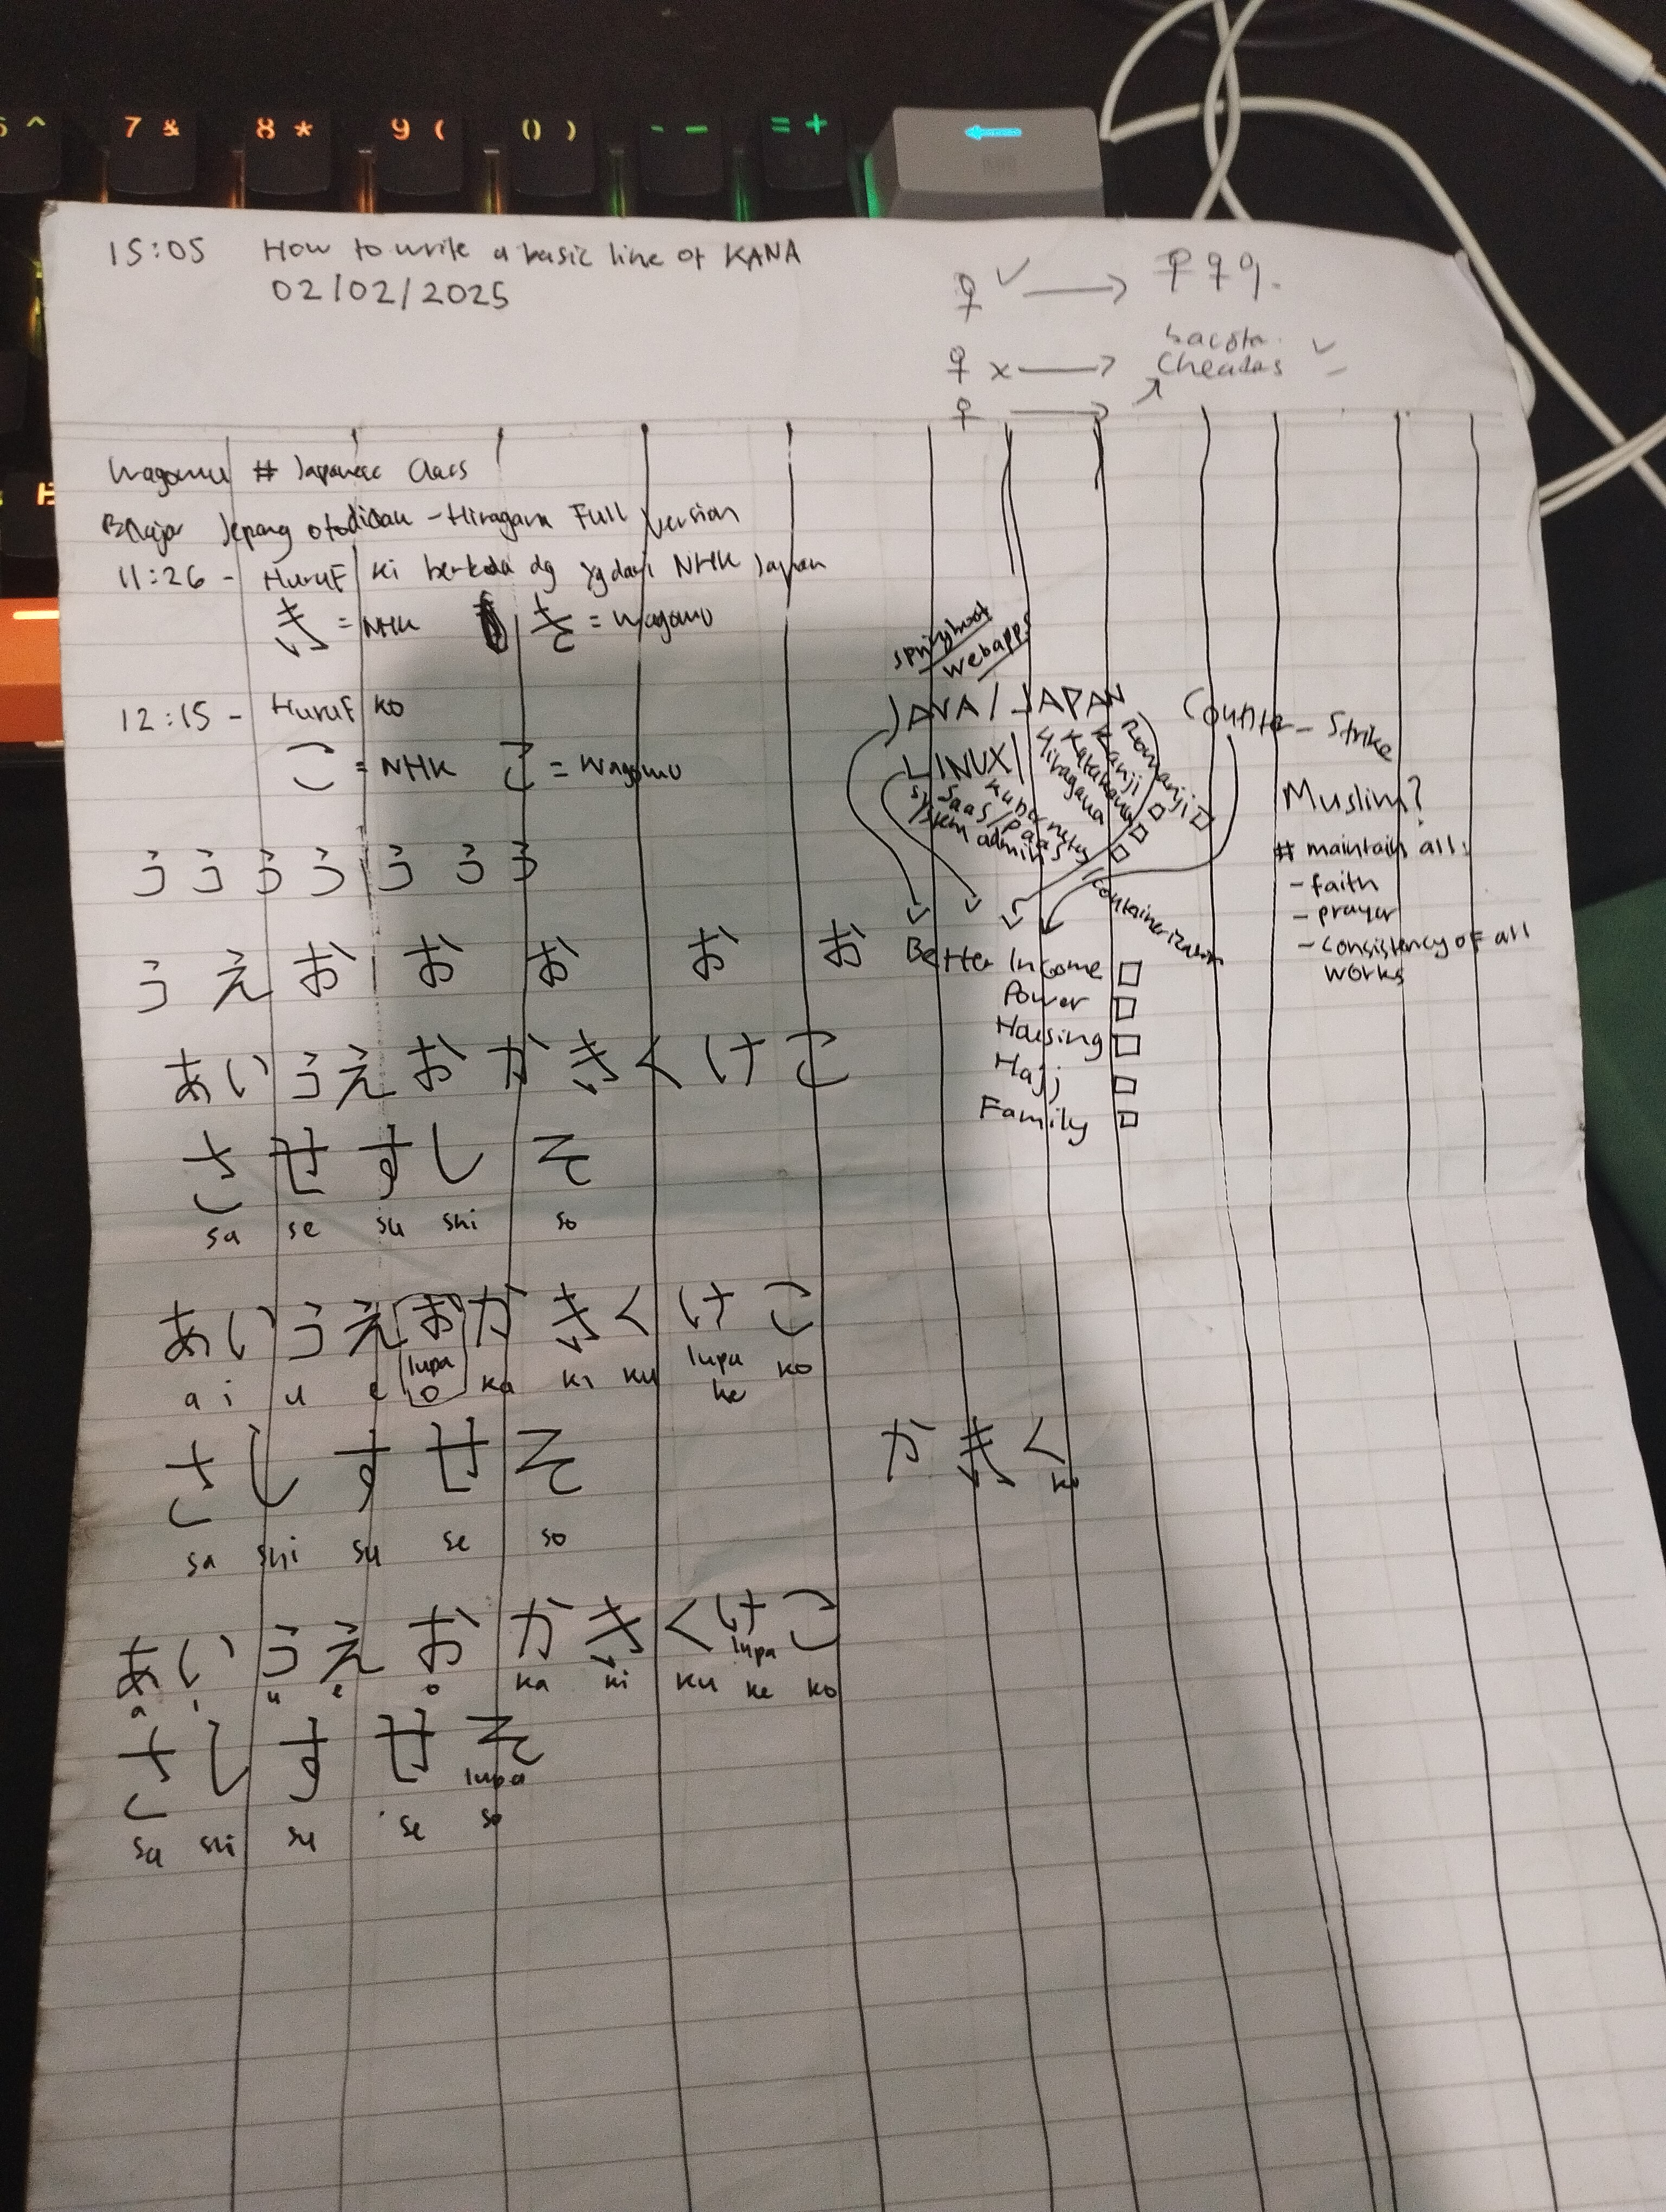 6 ^ 7 & 8 * 9 ( 0 ) - – = +
15:05 How to write a basic line of KANA
02/02/2025
Cheadas
Wagomu # Japanese Class
Belajar Jepang otodidak - Hiragana Full Version
11:26 - Huruf ki berbeda dg yg dari NHK Japan
き = NHK き = Wagomu
12:15 - Huruf ko
こ = NHK こ = Wagomu
う う う う う う う
う え お お お お お
あ い う え お か き く け こ
さ せ す し そ
sa se su shi so
あ い う え お か き く け こ
lupa lupa
a i u e o ka ki ku ke ko
さ し す せ そ
sa shi su se so
か き く
ku
あ い う え お か き く け こ
lupa
a i u e o ka ki ku ke ko
さ し す せ そ
lupa
sa shi su se so
springboot
webapps
JAVA / JAPAN
Romanji
Kanji
Katakana
Hiragana
LINUX /
Kubernetes / containerization
SaaS / PaaS
system admin
Counter-Strike
Better Income
Power
Housing
Hajj
Family
Muslim?
# maintain all:
- faith
- prayer
- consistency of all
works